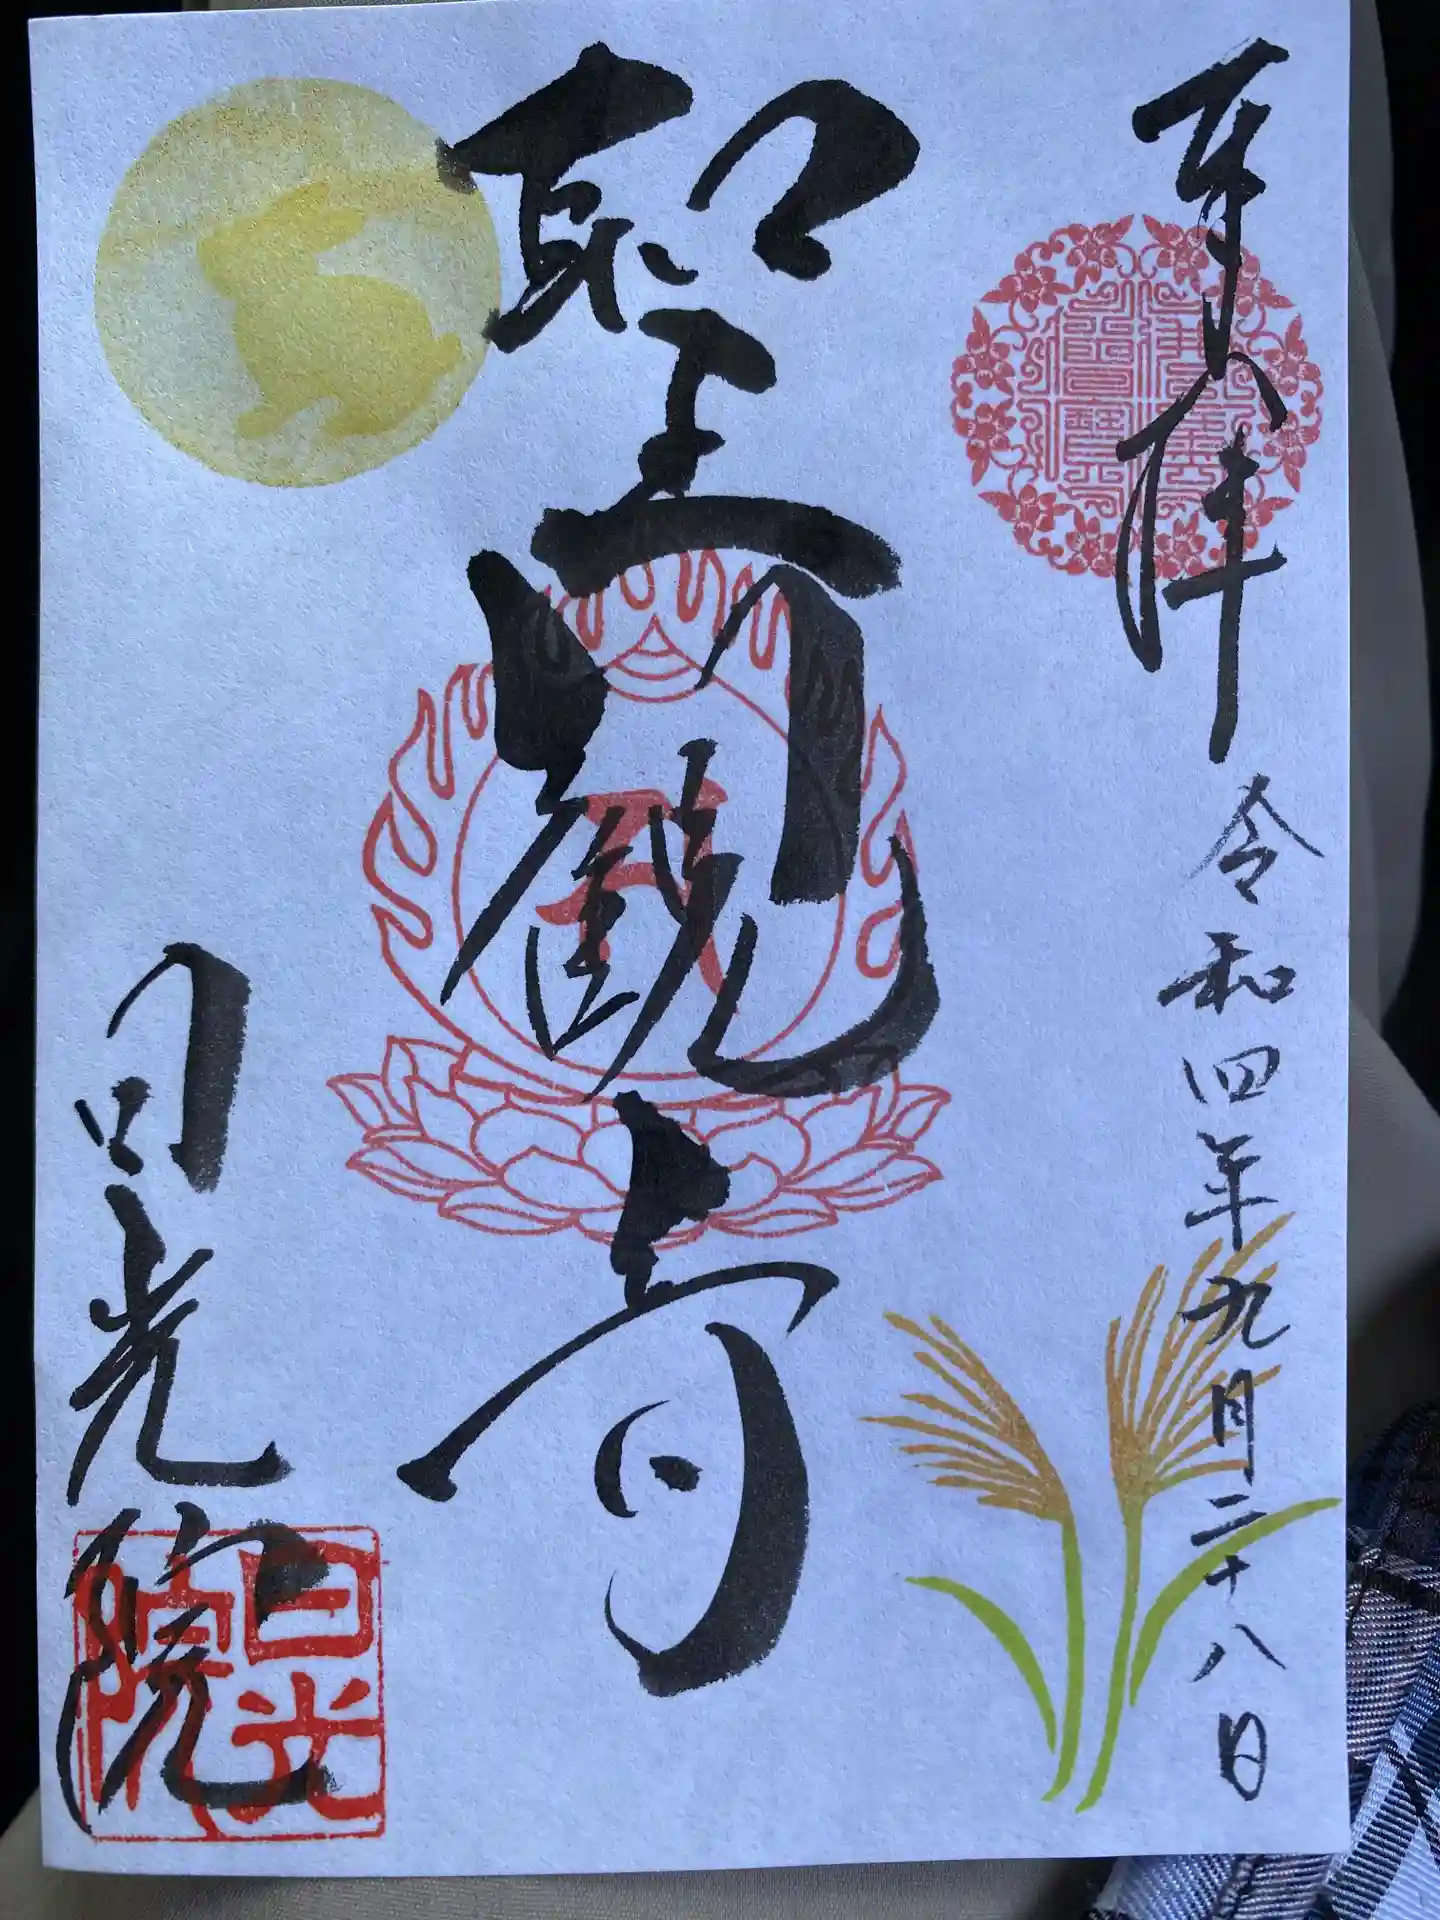 奉拝
令和四年九月二十八日
聖観音
日光院
日光院